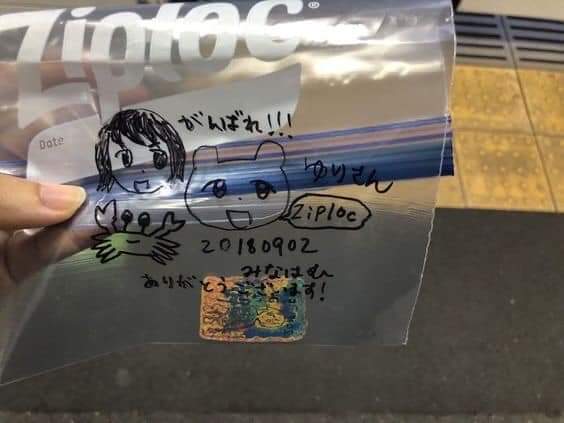 Ziploc®
Date
がんばれ!!!
ゆりさん
Ziploc
20180902
みなはむ
ありがとうございます!